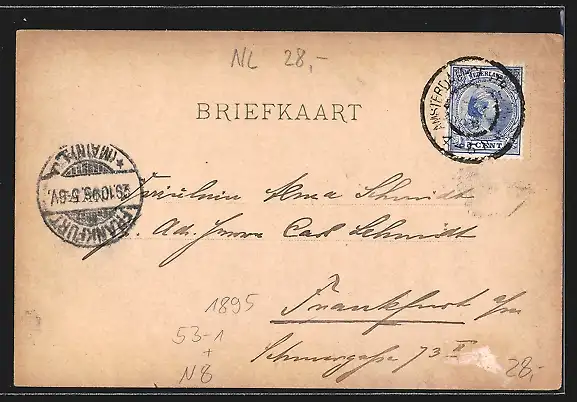 NL 28,-
BRIEFKAART
NEDERLAND
AMSTERDAM
5 CENT
FRANKFURT
*(MAIN)*
.10.95.5-6V.
Fräulein Alma Schmidt
Adr. Herrn Carl Schmidt
Frankfurt a/m
1895
53-1
+
N8
73 II
28,-